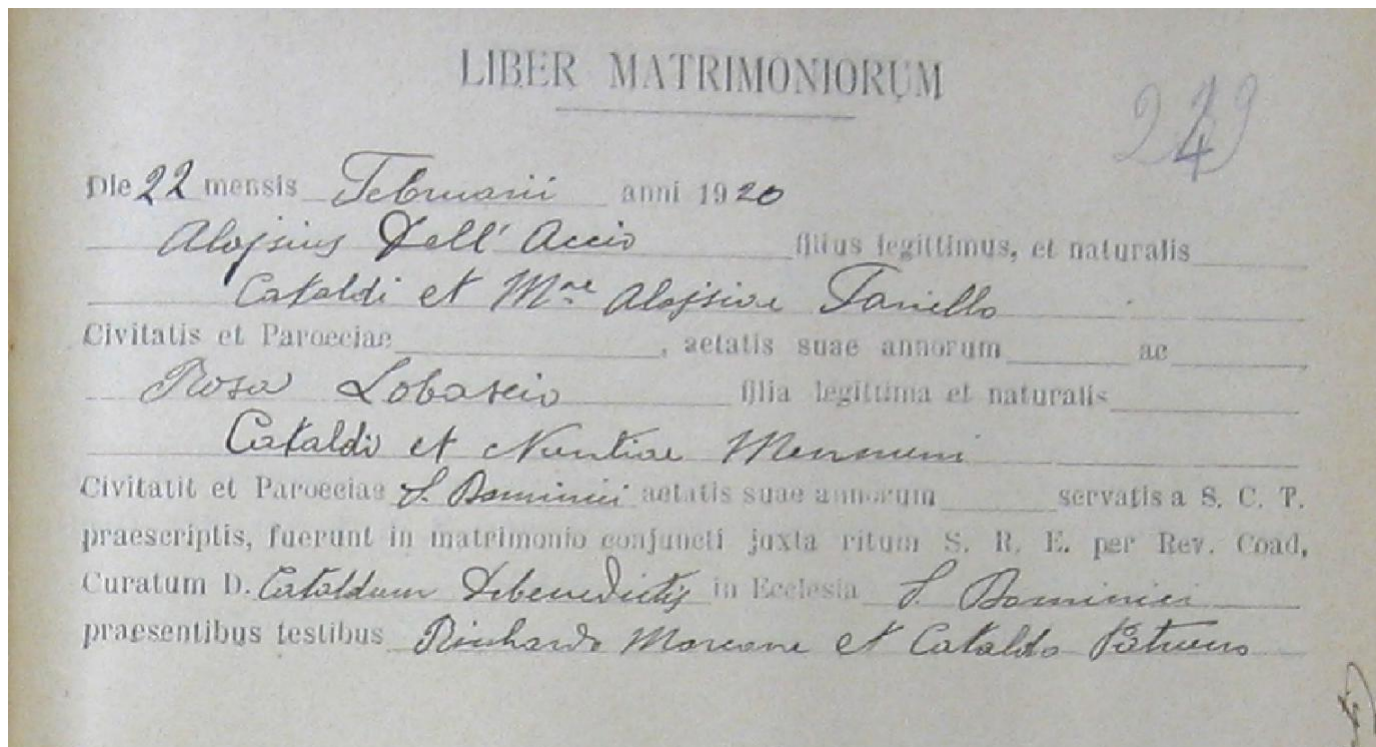 LIBER MATRIMONIORUM
249
Die 22 mensis Februarii anni 1920
Alojsius Dell' Accio filius legittimus, et naturalis
Cataldi et Mae Alojsiae Taniello
Civitatis et Paroeciae , aetatis suae annorum ac
Rosa Lobascio filia legittima et naturalis
Cataldi et Nuntiae Mennuni
Civitatit et Paroeciae S. Dominici aetatis suae annorum servatis a S. C. T.
praescriptis, fuerunt in matrimonio conjuncti juxta ritum S. R. E. per Rev. Coad,
Curatum D. Cataldum Debenedictis in Ecclesia S. Dominici
praesentibus testibus Richardo Marcone et Cataldo